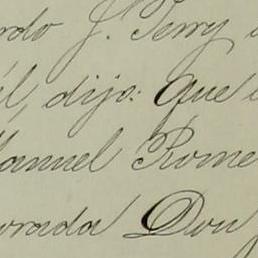 rdo J. Terry
él, dijo: Que
Manuel Rome
orada Don